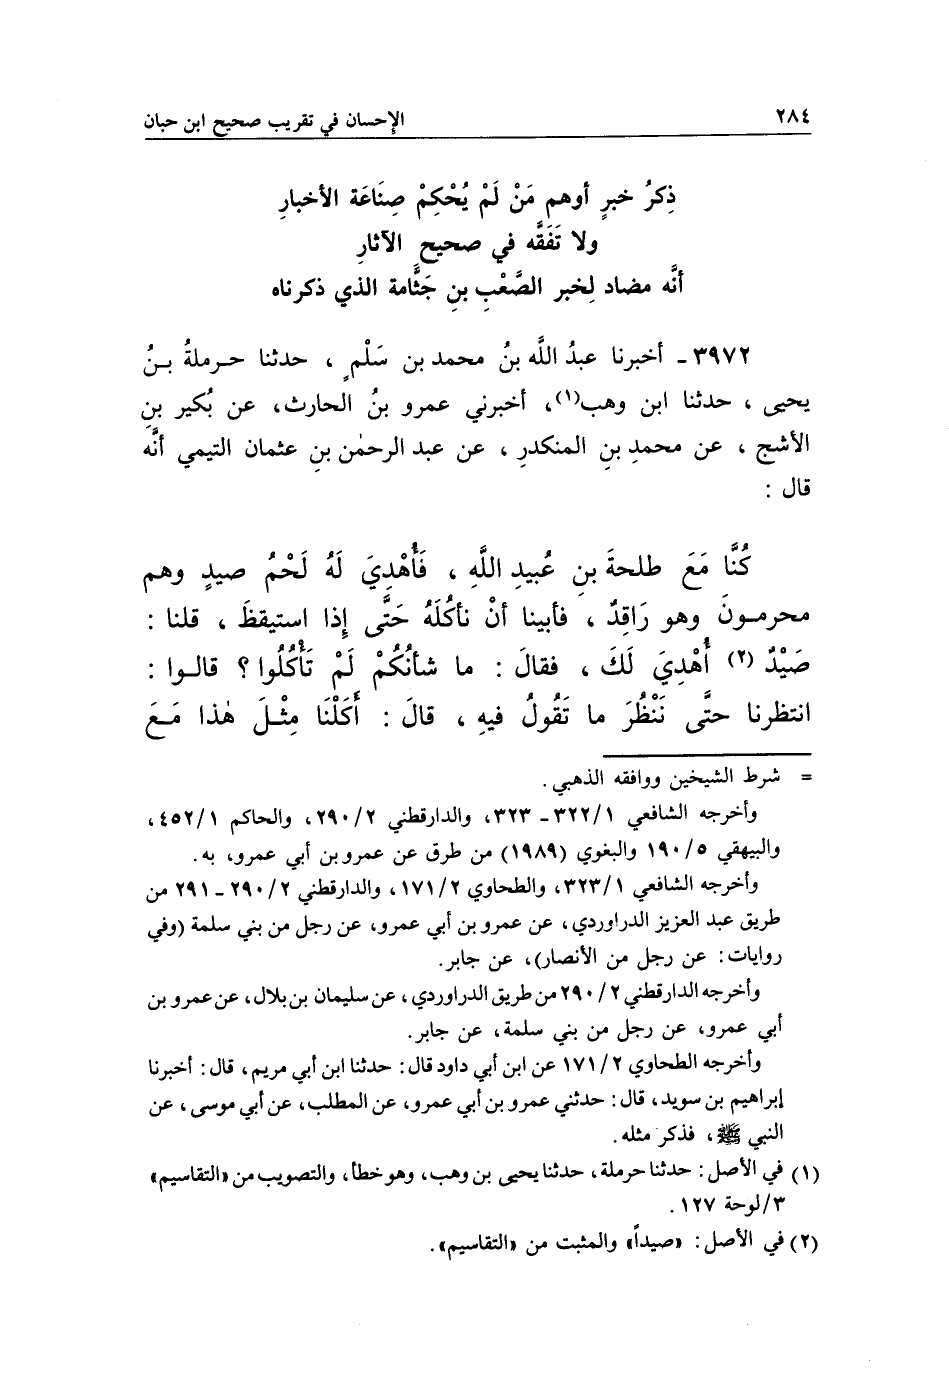 ٢٨٤
الإحسان في تقريب صحيح ابن حبان
ذِكرُ خبرٍ أوهم مَنْ لَمْ يُحْكِمْ صِنَاعَة الأخبارِ
ولا تَفَقَّه في صحيح الآثارِ
أنَّه مضاد لِخبر الصَّعْبِ بنِ جَثَّامة الذي ذكرناه
٣٩٧٢ - أخبرنا عبدُ اللَّه بنُ محمد بن سَلْمٍ ، حدثنا حرملةُ بنُ
يحيى ، حدثنا ابن وهب(١)، أخبرني عمرو بنُ الحارث، عن بُكير بنِ
الأشج ، عن محمدِ بنِ المنكدرِ ، عن عبد الرحمٰن بنِ عثمان التيمي أنَّه
قال :
كُنَّا مَعَ طلحةَ بنِ عُبيدِ اللَّهِ ، فَأُهْدِيَ لَهُ لَحْمُ صيدٍ وهم
محرمونَ وهو رَاقِدٌ ، فأبينا أنْ نأكُلَهُ حَتَّى إِذا استيقظَ ، قلنا :
صَيْدٌ (٢) أُهْدِيَ لَكَ ، فقالَ : ما شأنُكُمْ لَمْ تَأْكُلُوا ؟ قالوا :
انتظرنا حتَّى نَنْظُرَ ما تَقُولُ فيهِ ، قالَ : أَكَلْنَا مِثْلَ هٰذا مَعَ
= شرط الشيخين ووافقه الذهبي .
وأخرجه الشافعي ٣٢٢/١ - ٣٢٣، والدارقطني ٢٩٠/٢، والحاكم ٤٥٢/١،
والبيهقي ١٩٠/٥ والبغوي (١٩٨٩) من طرق عن عمرو بن أبي عمرو، به.
وأخرجه الشافعي ٣٢٣/١، والطحاوي ١٧١/٢، والدارقطني ٢٩٠/٢ - ٢٩١ من
طريق عبد العزيز الدراوردي، عن عمرو بن أبي عمرو، عن رجل من بني سلمة (وفي
روايات: عن رجل من الأنصار)، عن جابر.
وأخرجه الدارقطني ٢٩٠/٢ من طريق الدراوردي، عن سليمان بن بلال، عن عمرو بن
أبي عمرو، عن رجل من بني سلمة، عن جابر.
وأخرجه الطحاوي ١٧١/٢ عن ابن أبي داود قال: حدثنا ابن أبي مريم، قال: أخبرنا
إبراهيم بن سويد، قال: حدثني عمرو بن أبي عمرو، عن المطلب، عن أبي موسى، عن
النبي ﷺ، فذكر مثله.
(١) في الأصل: حدثنا حرملة، حدثنا يحيى بن وهب، وهو خطأ، والتصويب من «التقاسيم»
٣/لوحة ١٢٧.
(٢) في الأصل: «صيداً» والمثبت من «التقاسيم».